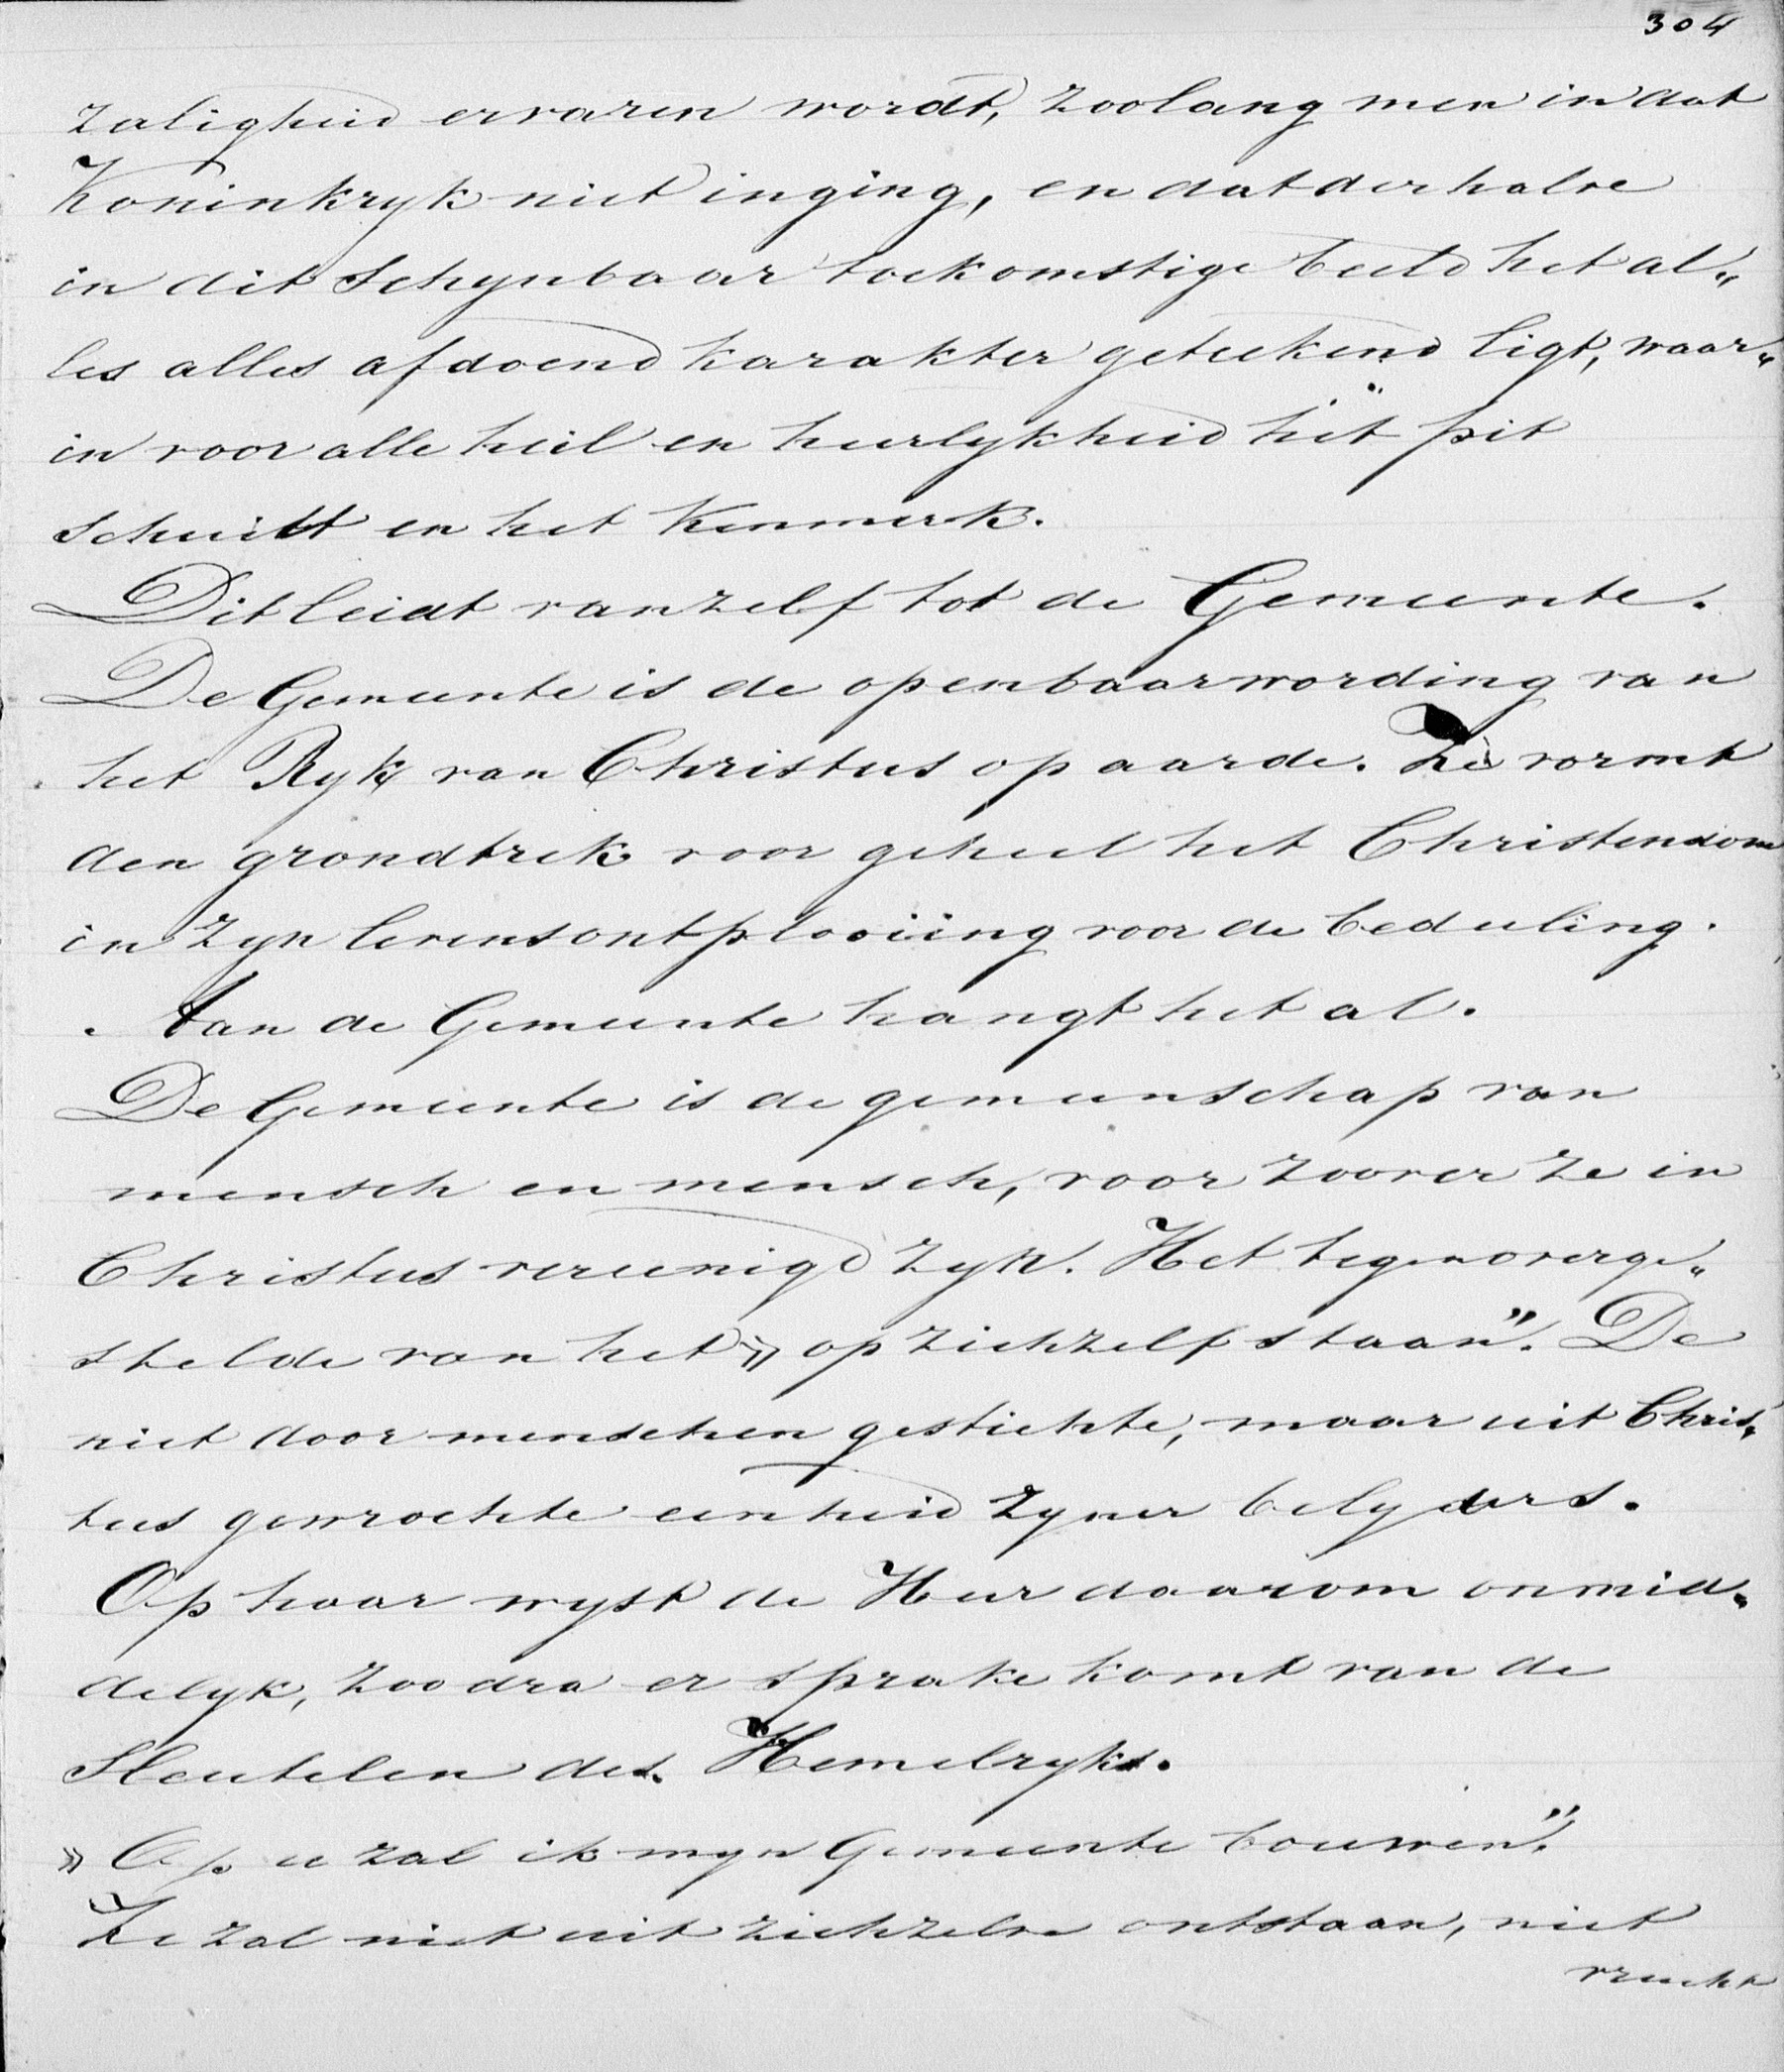 304
zaligheid ervaren wordt, zoolang men in dat
Koninkryk niet inging, en dat derhalve
in dit schynbaar toekomstige beeld het al„
les alles afdoend karakter geteekend ligt, waar„
in voor alle heil en heerlykheid het pit
schuilt en het Kenmerk.
Dit leidt vanzelf tot de Gemeente.
De Gemeente is de openbaarwording van
het Ryk van Christus op aarde. Ze vormt
den grondtrek voor geheel het Christendom
in zyn levensontplooiing voor de bedeeling.
Aan de Gemeente hangt het al.
De Gemeente is de gemeenschap van
mensch en mensch, voor zoover ze in
Christus vereenigd zyn. Het tegenoverge„
stelde van het » op zichzelf staan”. De
niet door menschen gestichte, maar uit Chris„
tus gewrochte eenheid zyner belyders.
Op haar wyst de Heer daarom onmid„
delyk, zoodra er sprake komt van de
Sleutelen des Hemelryks.
» Op u zal ik myn Gemeente bouwen”.
Ze zal niet uit zichzelve ontstaan, niet
vrucht